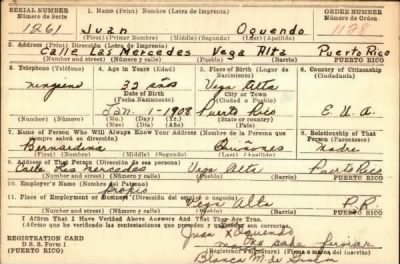 SERIAL NUMBER 1. Name (Print) Nombre (Letra de Imprenta) ORDER NUMBER
Número de Serie Número de Orden
1261 Juan Oquendo 1178
(First) (Primer Nombre) (Middle) (Segundo) (Last) (Apellido)
2. Address (Print) Dirección (Letra de Imprenta)
Calle Las Mercedes Vega Alta Puerto Rico
Number and street) (Número y calle) (Town) (Pueblo) PUERTO RICO
3. Telephone (Teléfono) 4. Age in Years (Edad) 5. Place of Birth (Lugar de Nacimiento) 6. Country of Citizenship (Ciudadanía)
ninguno 32 años Vega Alta
Date of Birth City or Town
(Fecha Nacimiento) (Ciudad o Pueblo)
Jan. 1-1908 Puerto Rico E. U. A.
(Mo.) (Day) (Yr.) State or country)
(Número) (Mes) (Día) (Año) (Estado o país)
7. Name of Person Who Will Always Know Your Address (Nombre de la Persona que siempre sabrá su dirección) 8. Relationship of That Person (Parentesco)
Bernardina Quiñones Madre
(First) (Nombre) (Middle) (Segundo) (Last) (Apellido)
9. Address of That Person (Dirección de esa persona)
Calle Las Mercedes Vega Alta Puerto Rico
Number and street) (Número y calle) (Town) (Pueblo) PUERTO RICO
10. Employer's Name (Nombre del Patrono)
propio
11. Place of Employment or Business (Lugar de empleo)
Vega Alta P.R.
(Number and street) (Número y calle) (Town) (Pueblo) PUERTO RICO
I Affirm That I Have Verified Above Answers And That They Are True.
(Afirmo que he verificado las contestaciones que preceden y que son ciertas)
Juan Oquendo
REGISTRATION CARD no sabe firmar
D. S. S. Form 1
(Revised) Blanca M. de